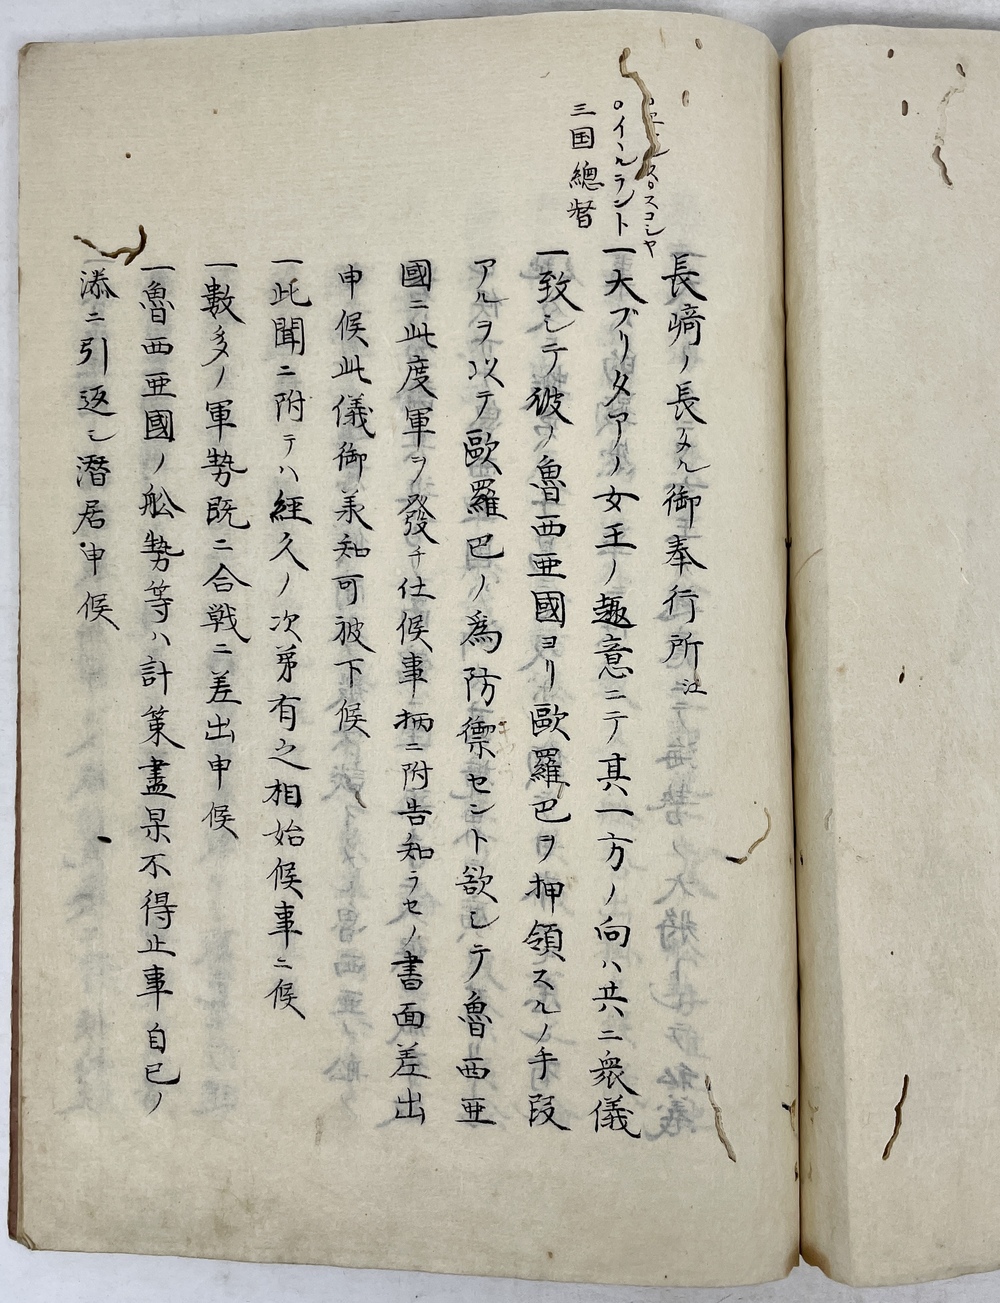 スコシヤ
○イルラント
三国總督
長﨑ノ長タル御奉行所江
一大ブリタアノ女王ノ趣意ニテ其一方ノ向ハ共ニ衆儀
一致シテ彼ノ魯西亜國ヨリ歐羅巴ヲ押領スルノ手段
アルヲ以テ歐羅巴ノ為防禦セント欲シテ魯西亜
國ニ此度軍ヲ發チ仕候事柄ニ附告知ラセノ書面差出
申候此儀御承知可被下候
一此聞ニ附テハ經久ノ次第有之相始候事ニ候
一數多ノ軍勢既ニ合戦ニ差出申候
一魯西亜國ノ舩勢等ハ計策盡果不得止事自己ノ
添ニ引返シ潜居申候